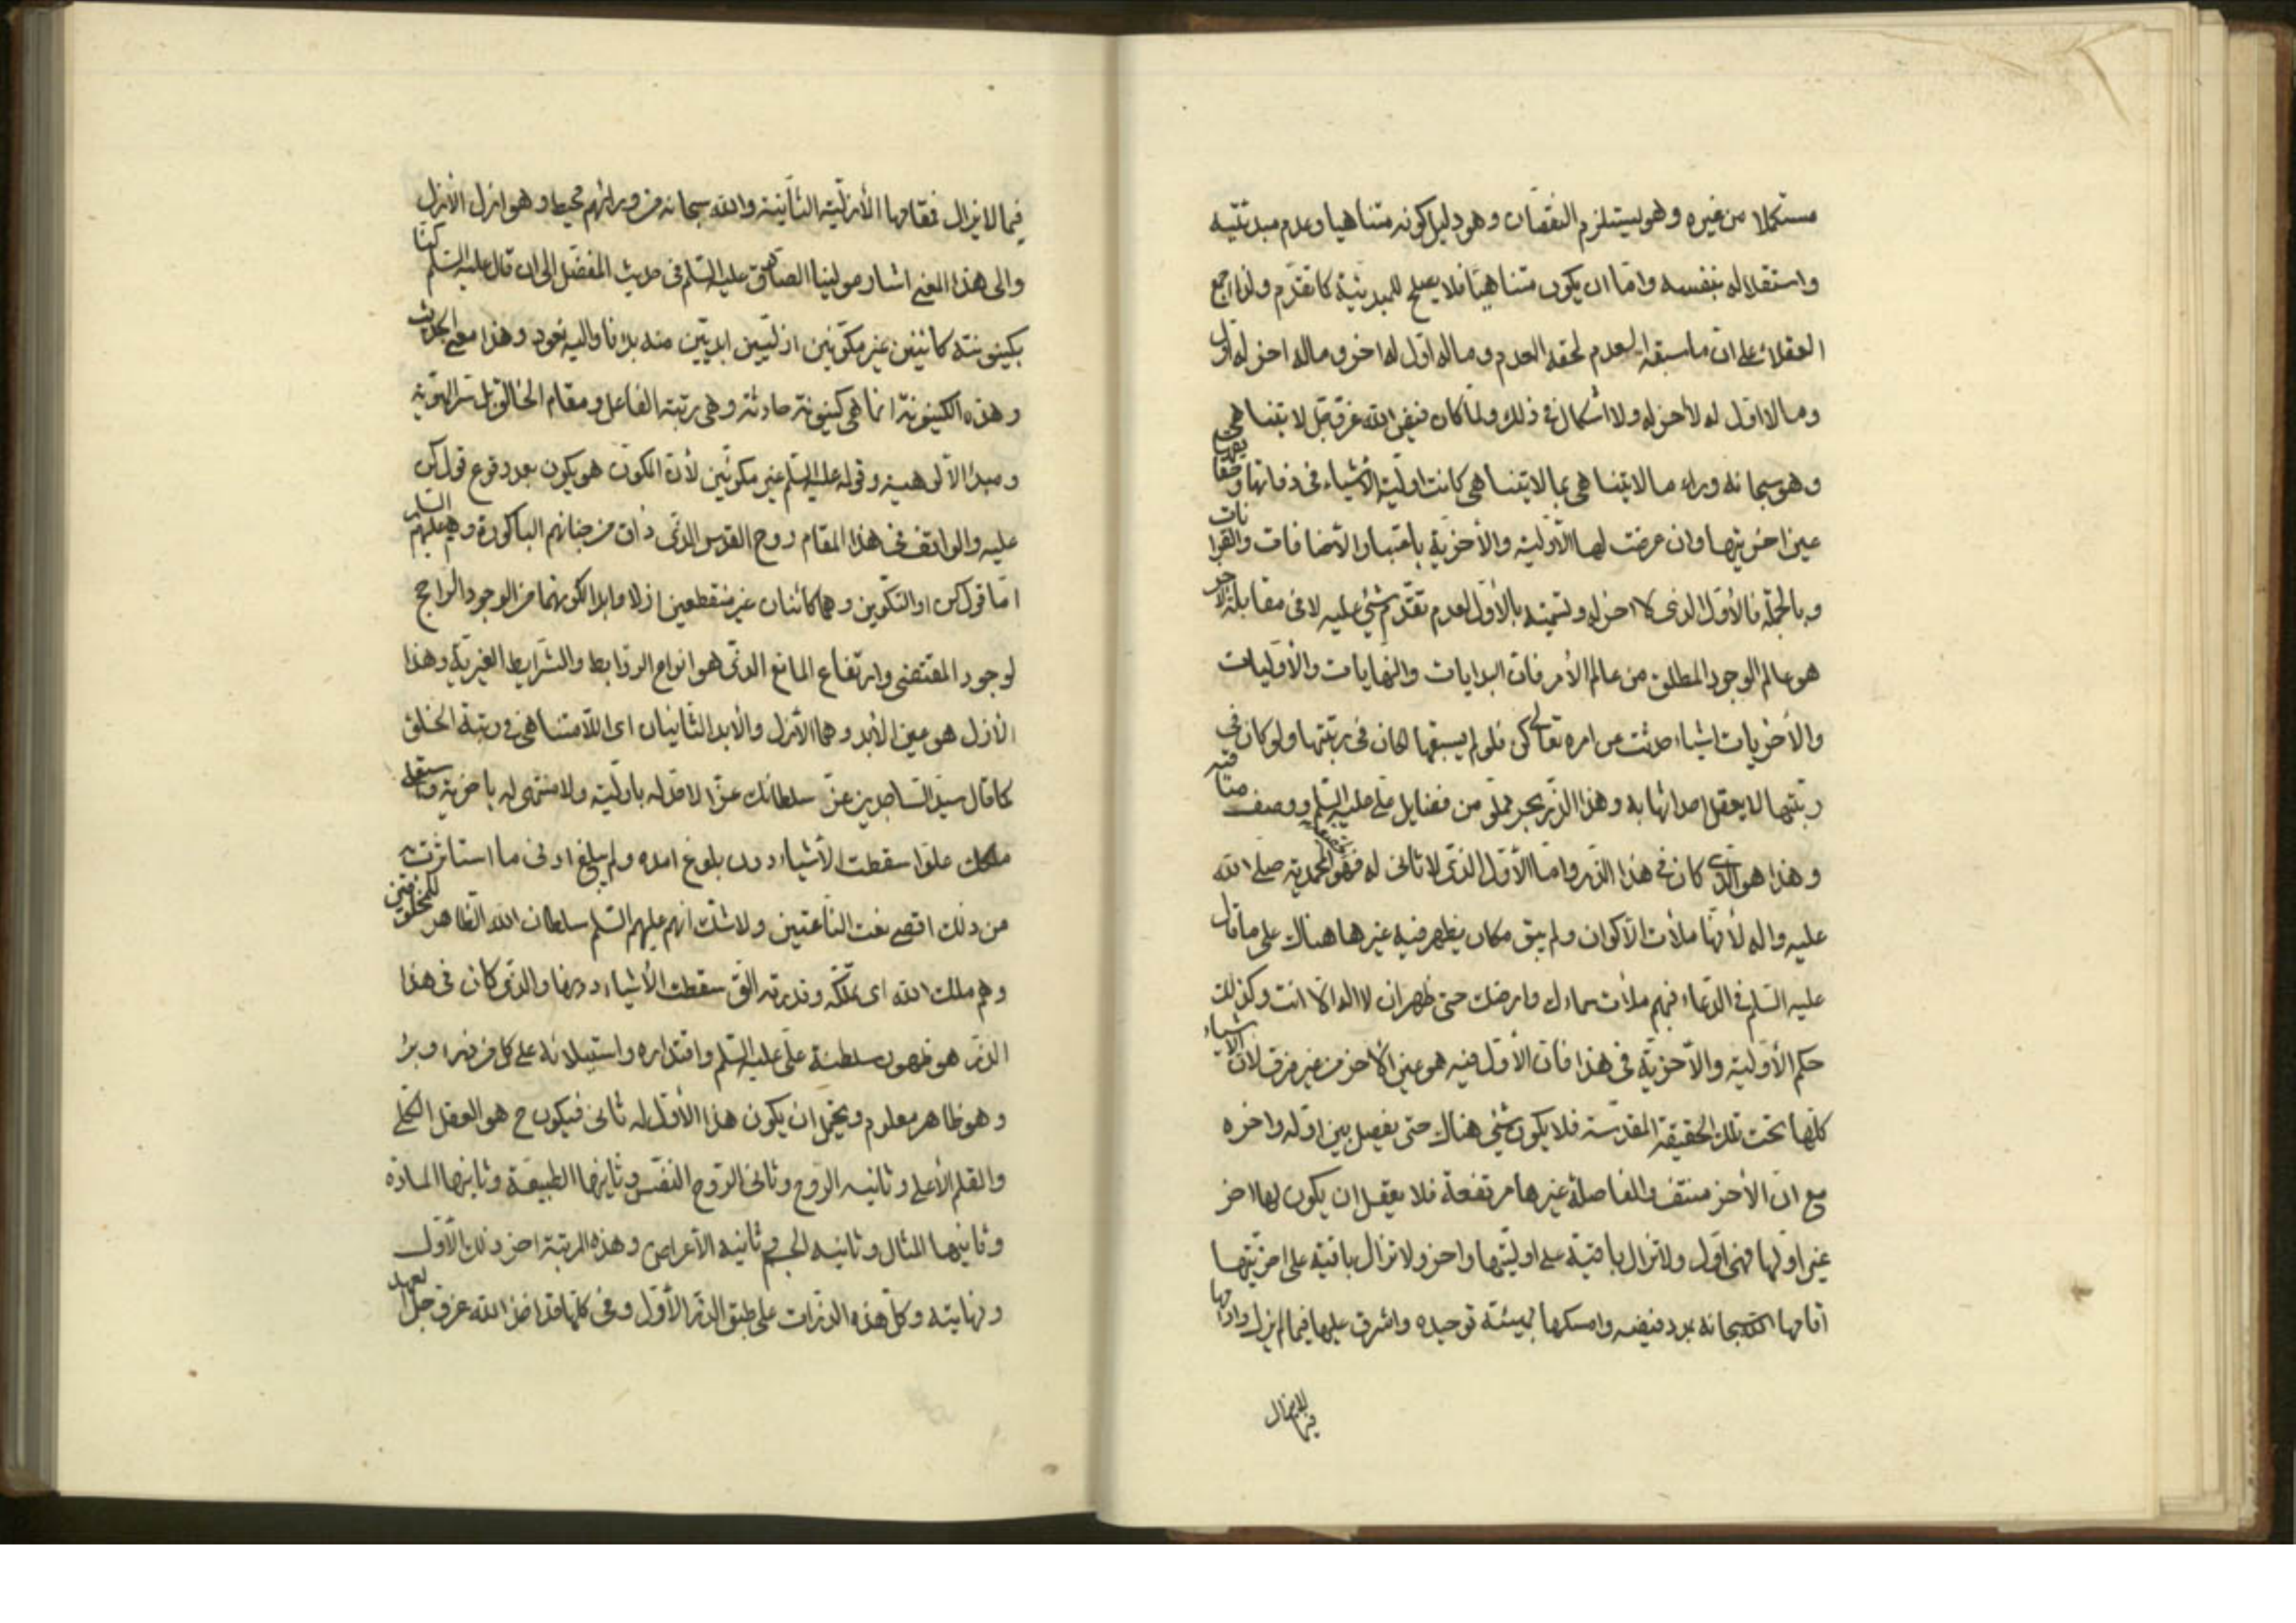 مستكملا من غيره وهو يستلزم النقصان وهو دليل كونه متناهيا وعدم مبدئيته
واستقلاله بنفسه واما ان يكون متناهيا فلا يصلح للمبدئية كما تقدم ولذا اجمع
العقلاء على ان ما سبقه العدم لحقه العدم وماله اول له اخر وماله اخر له اول
وما لا اول له لا اخر له ولا اشكال في ذلك ولما كان فيض الله عز وجل لا يتناهى
وهو سبحانه وراء ما لا يتناهى بما لا يتناهى كانت اولية الأشياء في ذواتها وصقعها
عين اخريتها وان عرضت لها الأولية والأخرية باعتبار الأضافات والقرانات
وبالجملة فالأول الذي لا اخر له وتسميته بالأول لعدم تقدم شيء عليه لا في مقابلة الآخر
هو عالم الوجود المطلق من عالم الأمر فان البدايات والنهايات والأوليات
والأخريات اشياء حدثت من امره تعالى كن فلو لم يسبقها لكان في رتبتها ولو كان في
رتبتها لا يعقل احداثها به وهذا الذر بحر مملو من فضايل علي عليه السلم ووصف مناقبه
وهذا هو الذي كان في هذا الذر واما الأول الذي لا ثاني له فهو الحقيقة المحمدية صلى الله
عليه واله لأنها ملأت الأكوان ولم يبق مكان يظهر فيه غيرها هناك على ما قال
عليه السلم في الدعاء فبهم ملأت سماءك وارضك حتى ظهر ان لا اله الا انت وكذلك
حكم الأولية والأخرية في هذا فان الأول فيه هو عين الأخر من غير فرق لأن الأشياء
كلها تحت تلك الحقيقة المقدسة فلا يكون شيء هناك حتى يفصل بين اوله واخره
مع ان الأخر منتف والفاصلة غيرها مرتفعة فلا يعقل ان يكون لها اخر
غير اولها فهي اول ولا تزال باقية على اوليتها واخر ولا تزال باقية على اخريتها
اقامها الله سبحانه بمدد فيضه وامسكها بهيئة توحيده واشرق عليها فيما لم يزل وادامها
فيما لا يزال
فيما لا يزال فقامها الأزلية الثانية والله سبحانه من ورائهم محيط وهو ازل الأزل
والى هذا المعنى اشار مولينا الصادق عليه السلم في حديث المفضل الى ان قال عليه السلم كنا
بكينونته كائنين غير مكونين ازليين ابديين منه بدانا واليه نعود وهذا معنى الحديث
وهذه الكينونة انما هي كينونة حادثة وهي رتبة الفاعل ومقام الخالق بل سر الهوية
ومبدأ الألوهية وقوله عليه السلم غير مكونين لأن المكون هو يكون بعد وقوع قول كن
عليه والواقف في هذا المقام روح القدس الذي ذاق من جنانهم الباكورة وهم عليهم السلم
اما قول كن او التكوين وهما كائنان غير منقطعين ازلا وابدا لكونهما من الوجود الراجح
لوجود المقتضي وارتفاع المانع الذي هو انواع الروابط والشرايط الغيرية وهذا
الأزل هو عين الأبد وهما الأزل والأبد الثانيان اى اللامتناهى في رتبة الخلق
كما قال سيد الساجدين عز سلطانك عزا لا حد له باولية ولا منتهى له باخرية واستعلى
ملكك علوا سقطت الأشياء دون بلوغ امده ولم يبلغ ادنى ما استاثرت به
من ذلك اقصى نعت الناعتين ولا شك انهم عليهم السلم سلطان الله الظاهر للمخلوقين
وهم ملك الله اى تملكه وقدرته التي سقطت الأشياء دونها والذي كان في هذا
الذر هو ظهور سلطنة علي عليه السلم واقتداره واستيلائه على كل من ذرا وبرء
وهو ظاهر معلوم ويحتمل ان يكون هذا الأول له ثاني فيكون ح هو العقل الكلي
والقلم الأعلى وثانيه الروح وثاني الروح النفس وثانيها الطبيعة وثانيها المادة
وثانيها المثال وثانيه الجسم وثانيه الأعراض وهذه المرتبة اخر ذلك الأول
ونهايته وكل هذه الذرات على طبق الذر الأول وفي كلها قد اخذ الله عز وجل العهد